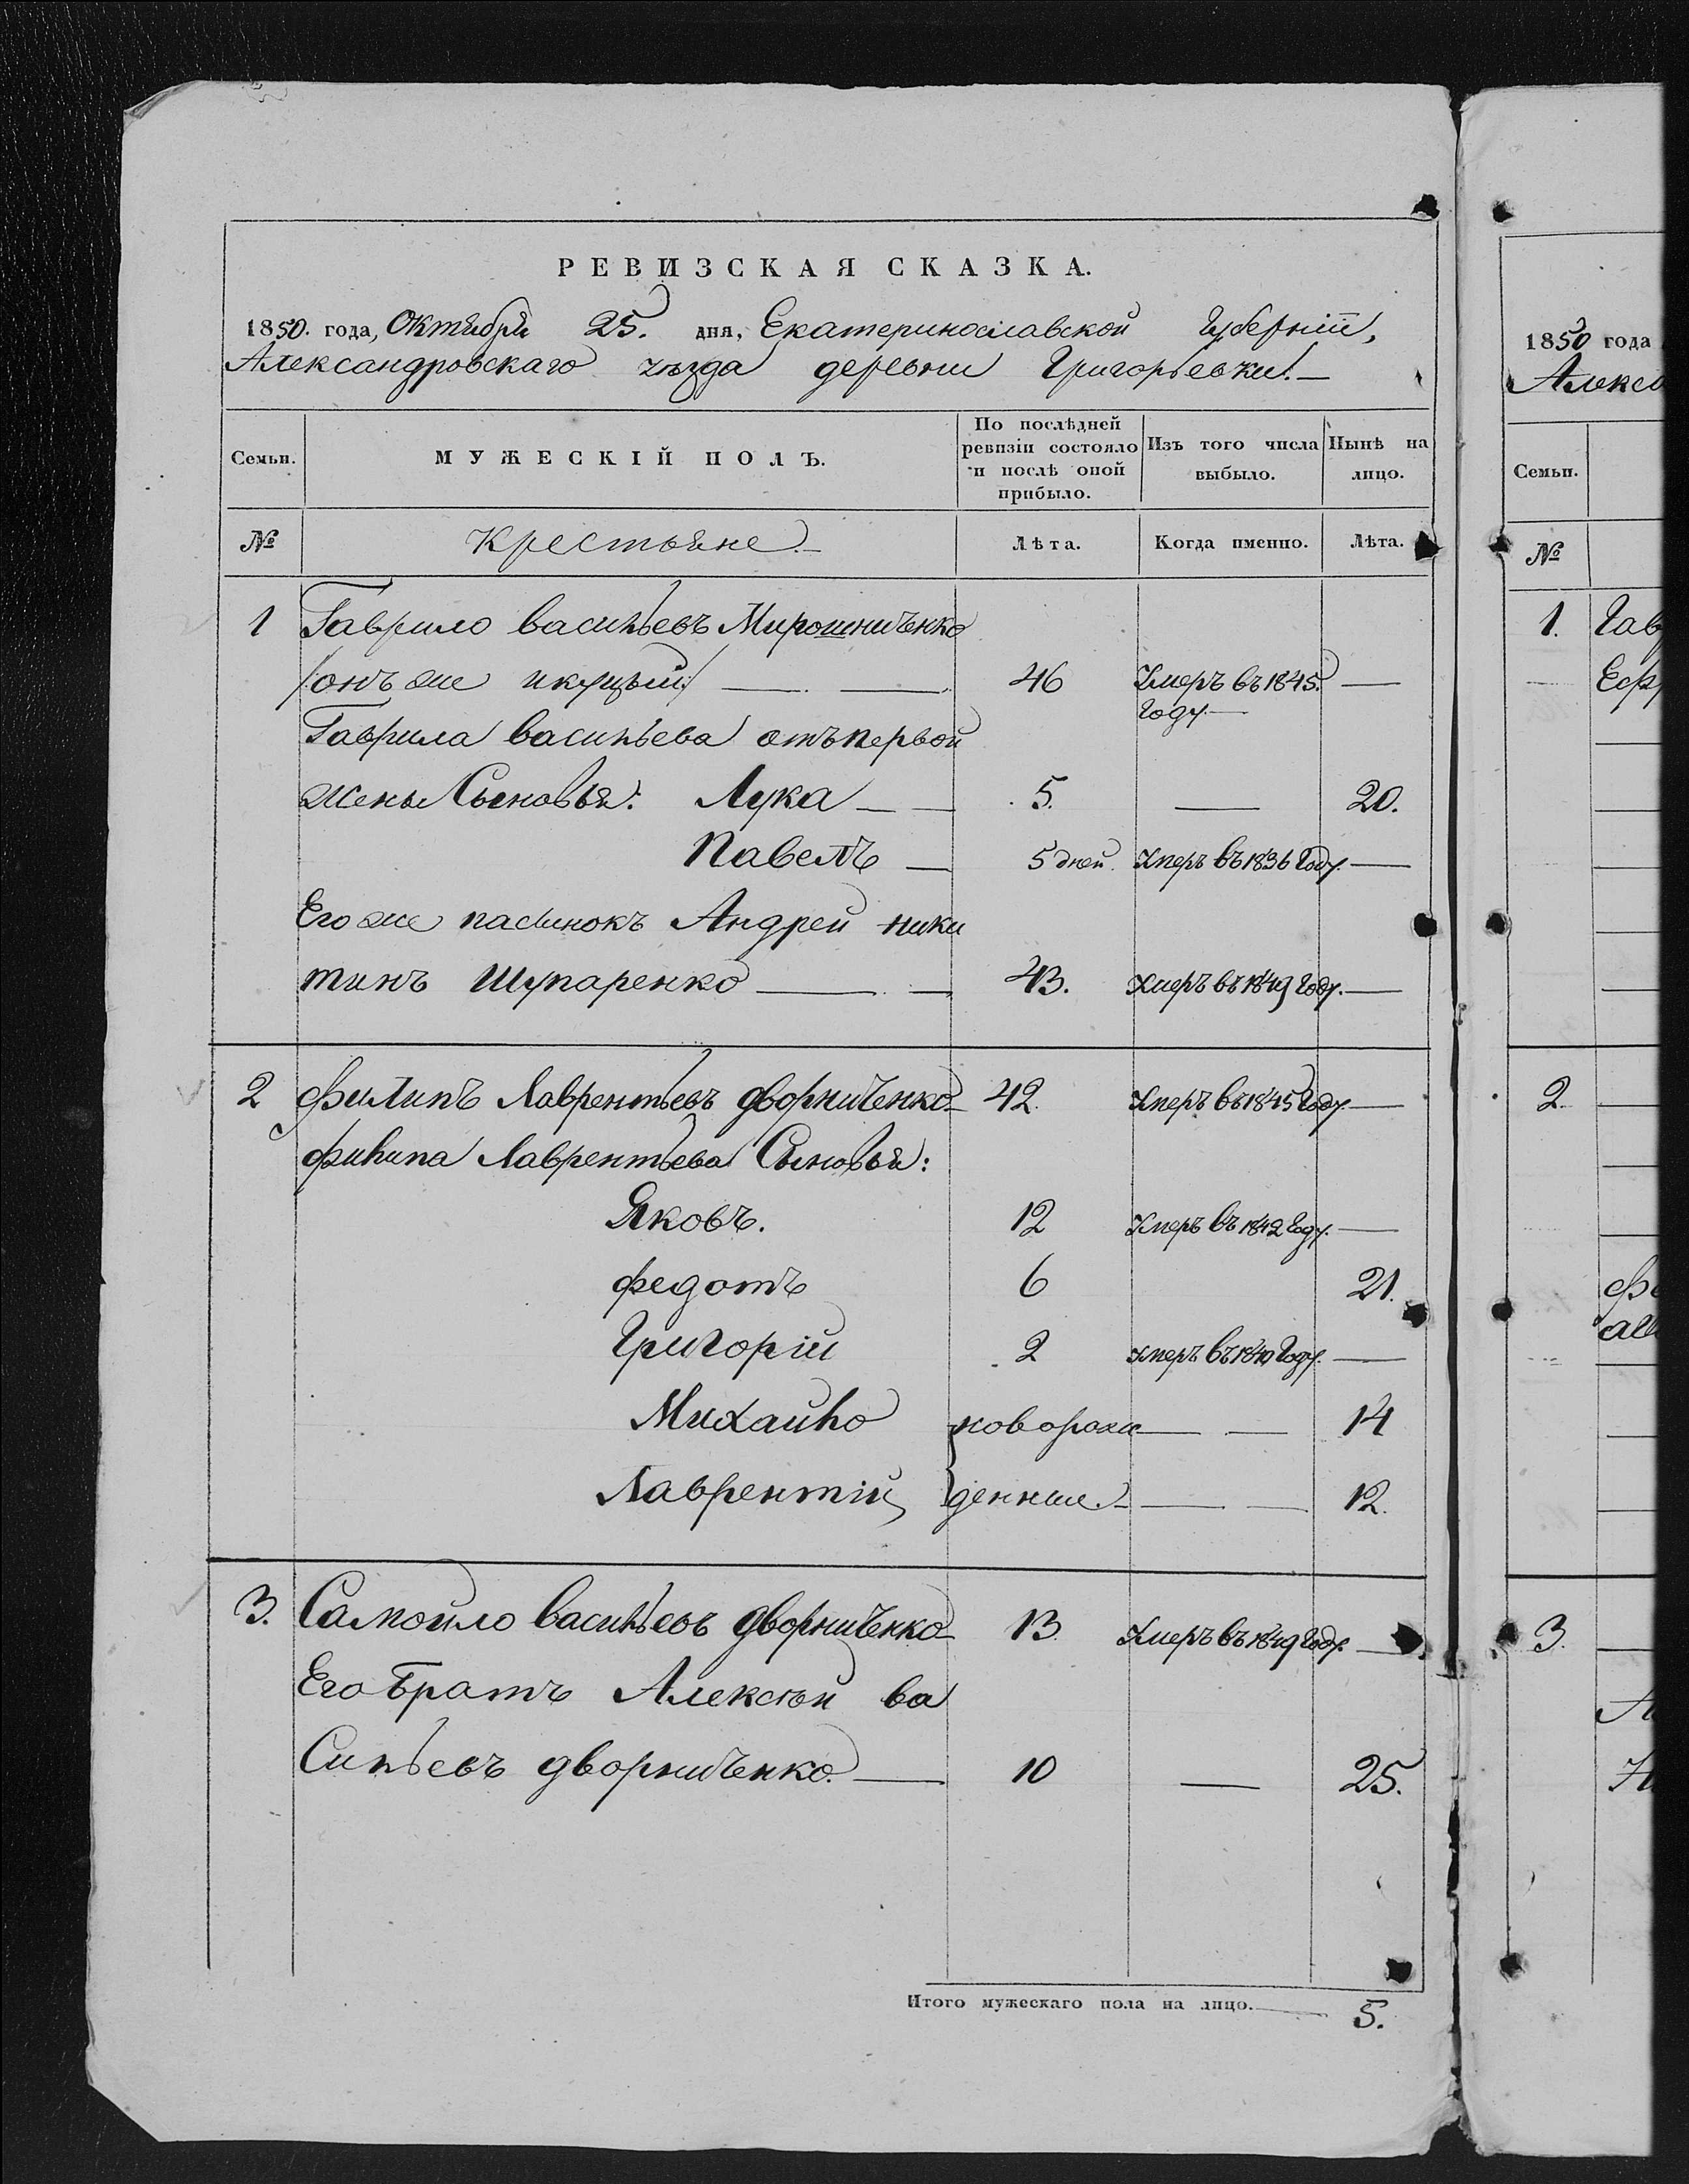 РЕВИЗСКАЯ СКАЗКА.
1850. года, Октября 25. дня, Екатеринославской Губерніи,
Александровскаго уѣзда деревни Григорьевки.—
Семьи. МУЖЕСКІЙ ПОЛЪ. По послѣдней ревизіи состояло и послѣ оной прибыло. Изъ того числа выбыло. Нынѣ на лицо.
№ Крестьяне.— Лѣта. Когда именно. Лѣта.
1 Гаврило васильевъ Мирошниченко
/:онъ же :/ — — 46 Умеръ въ 1845. Году.— —
Гаврила васильева отъ первой
жены Сыновья: Лука — — 5. — 20.
Павелъ — 5 дней. Умеръ въ 1836 Году. —
Его же пасынокъ Андрей ники
тинъ Шупаренко — — 43. Умеръ въ 1849 Году. —
2 филипъ Лаврентьевъ дворниченко— 42. Умеръ въ 1845 Году —
филипа Лаврентьева Сыновья:
Яковъ. 12 Умеръ въ 1842 Году. —
федотъ 6 21.
Григорій 2 умеръ въ Году. —
Михайло новорож — — 14
Лаврентій денные.— — — 12.
3. Самойло васильевъ дворниченко— 13 Умеръ въ 1849 Году. —
Его братъ Алексѣй ва
Сильевъ дворниченко. — 10 — 25.
Итого мужескаго пола на лицо. — 5.
1850 года
Алекса
Семьи.
№
1. Гав
Ефр
2.
3.